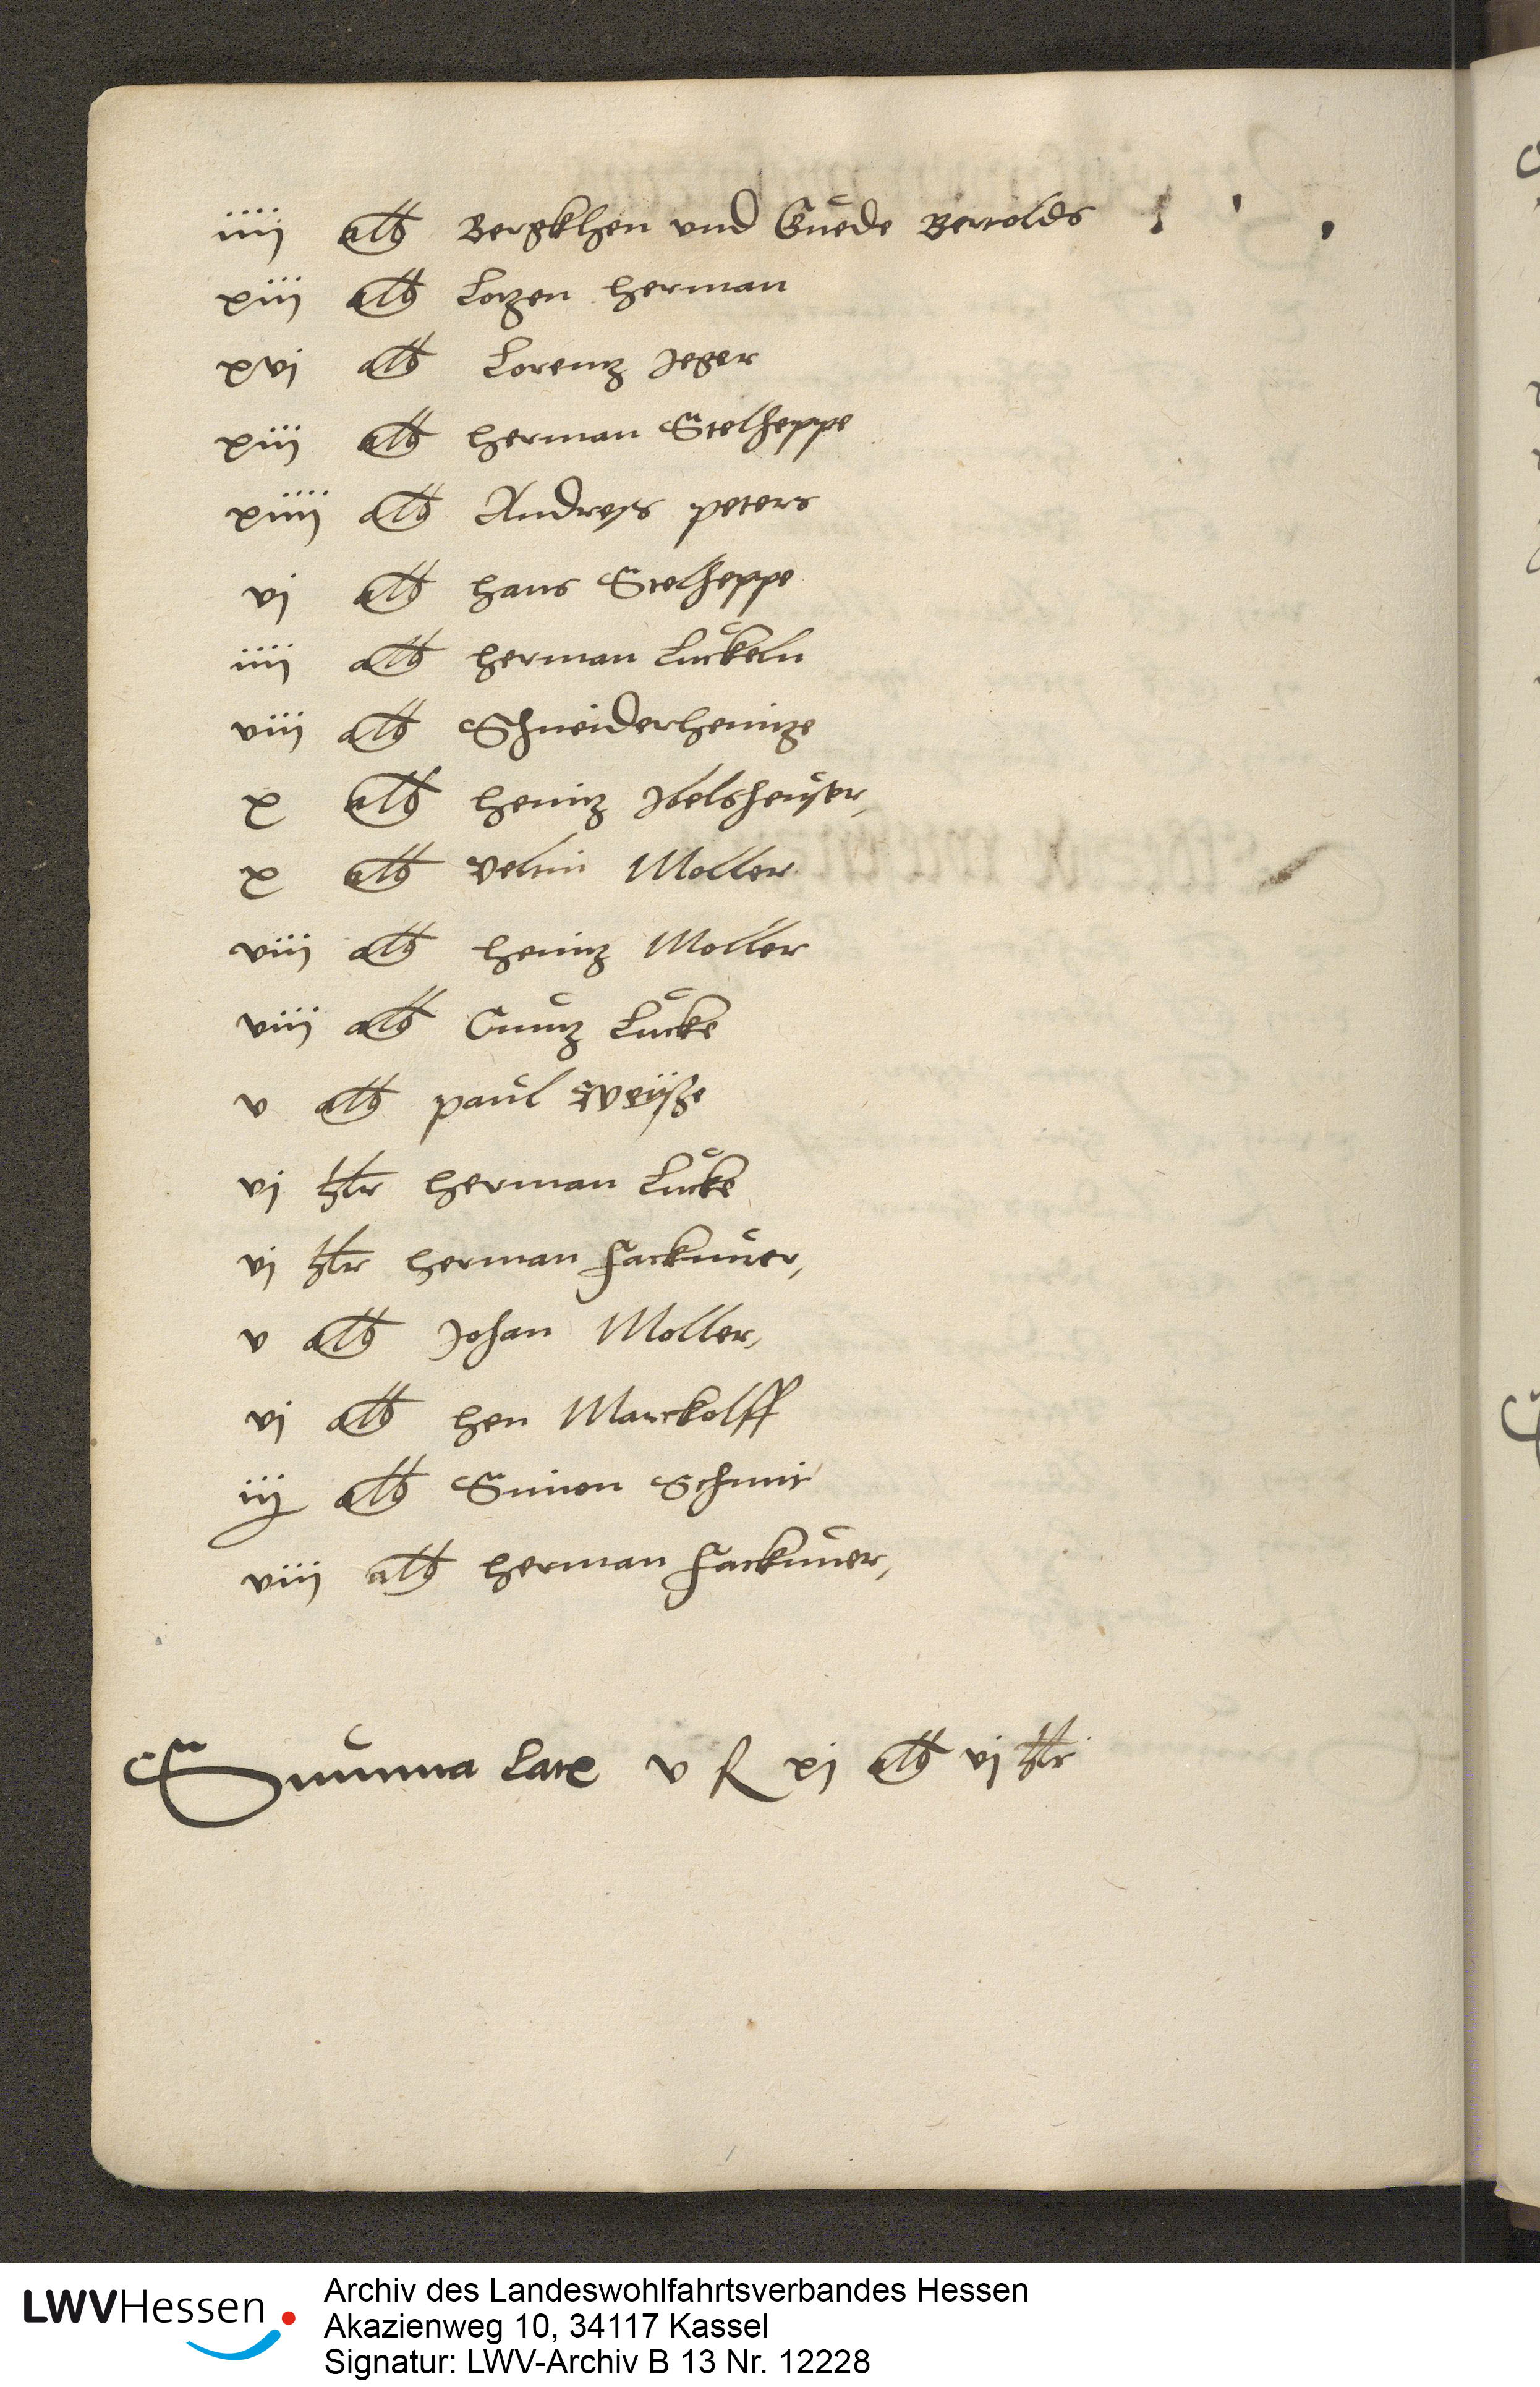 iiij alb Bergkhen vnd Guede Bertolds
xiij alb Lotzen herman
xvj alb Lorentz Jeger
xiij alb herman Stelheppe
xiiij alb Andreß peters
vj alb hans Stelheppe
iiij alb herman Luckeln
viij alb Schneiderheintze
x alb heintz Ibelsheuser,
x alb veltin Moller
viij alb heintz Moller
viij alb Cuntz Lucke
v alb paul Weyße
vj hlr herman Lucke
vj hlr herman fackiner,
v alb Johan Moller,
vj alb hen Marckolff
iij alb Simon Schmit
viij alb herman fackiner,
Summa Late v fl xj alb vj hlr
LWVHessen
Archiv des Landeswohlfahrtsverbandes Hessen
Akazienweg 10, 34117 Kassel
Signatur: LWV-Archiv B 13 Nr. 12228